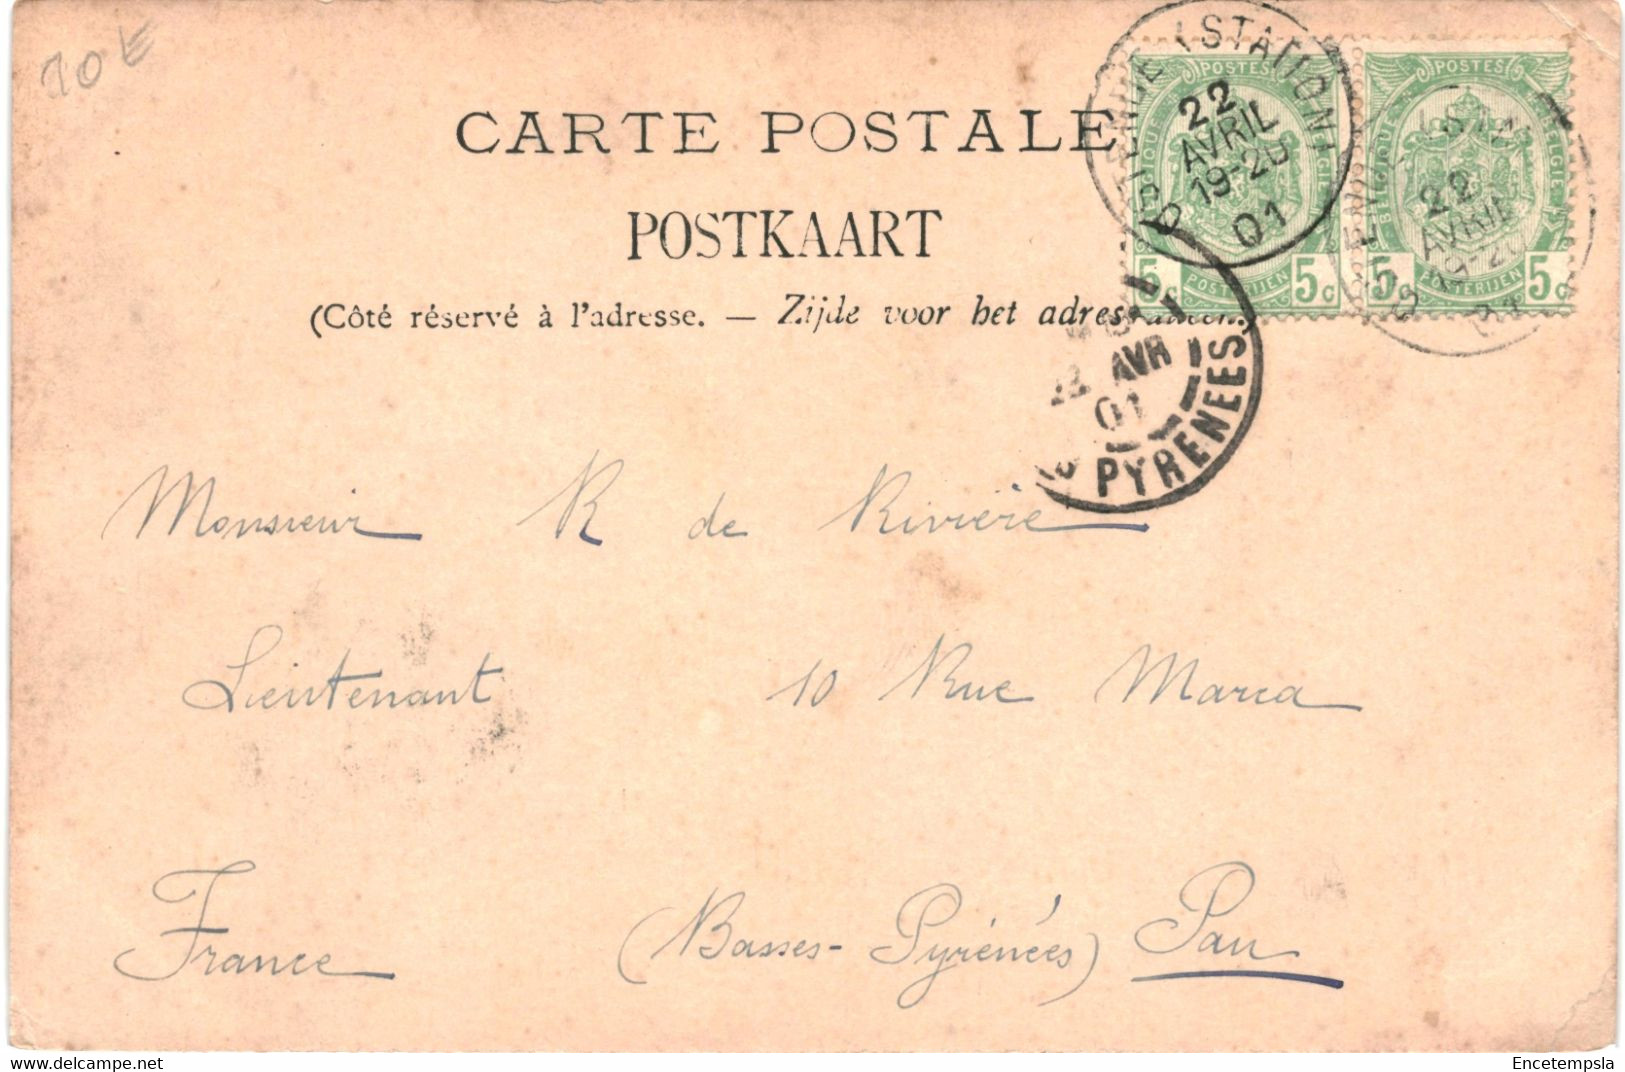 10 €
CARTE POSTALE
POSTKAART
(Côté réservé à l'adresse. — Zijde voor het
OSTENDE (STATION)
22
AVRIL
19-20
01
POSTES
BELGIQUE
BELGIE
5c 5c
POSTERIJEN
POSTES
BELGIQUE
BELGIE
5c 5c
POSTERIJEN
22
AVRIL
19-20
AVR
01
PYRENEES
Monsieur R de Rivière
Lieutenant 10 Rue Marca
France (Basses-Pyrénées) Pau
delcampe.net
Encetempsla